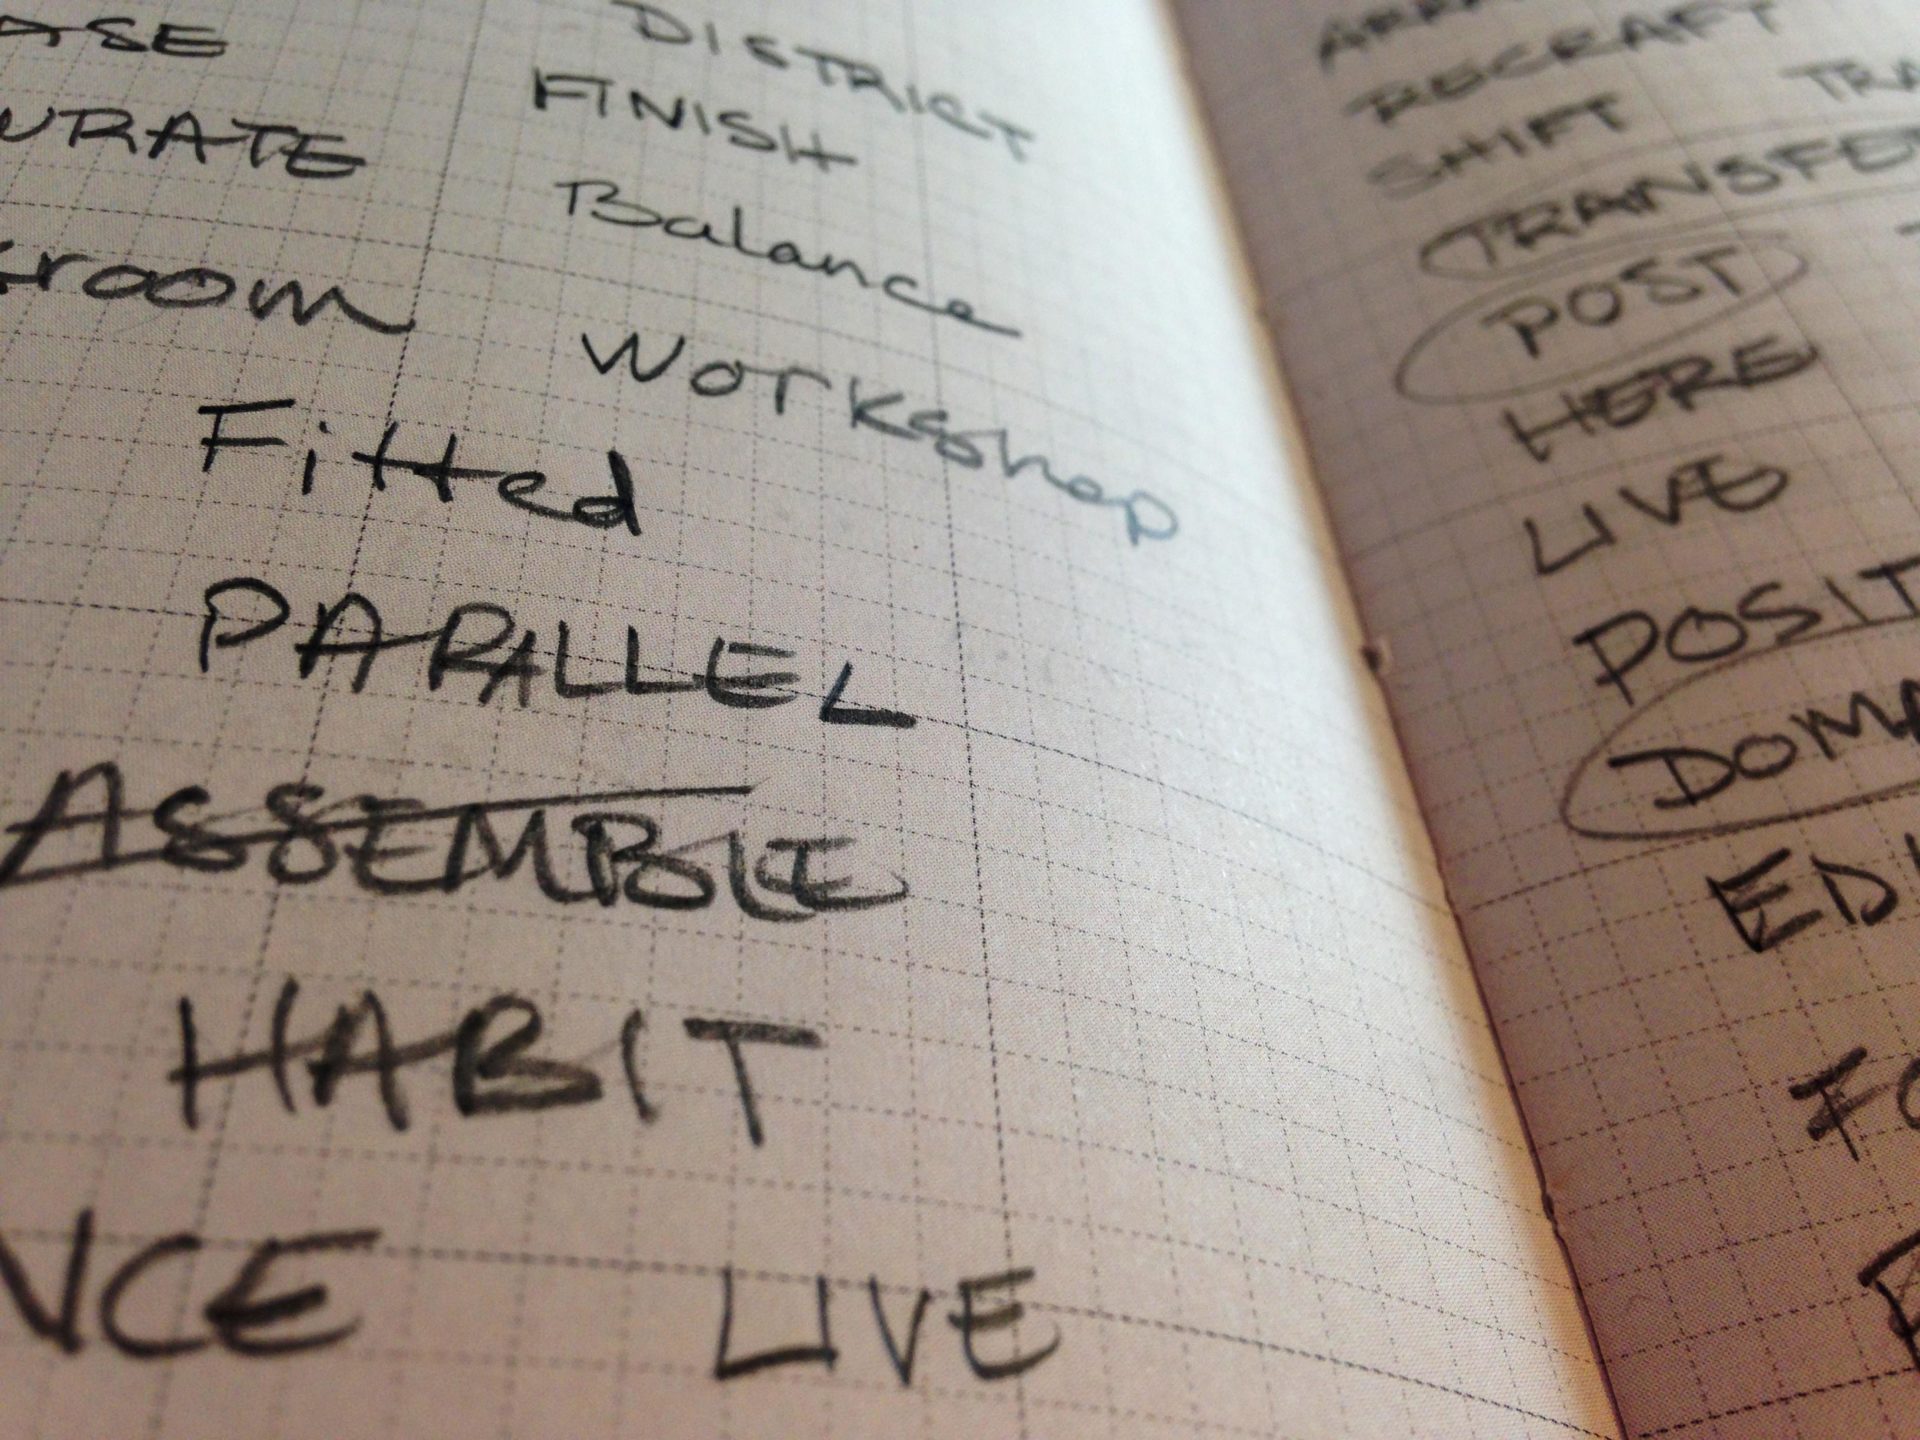 ASE
DISTRICT
URATE
FINISH
Balance
room
Workshop
Fitted
PARALLEL
ASSEMBLE
HABIT
NCE LIVE
RECRAFT
SHIFT TRA
TRANSFE
POST
HERE
LIVE
POSIT
DOMA
ED
FO